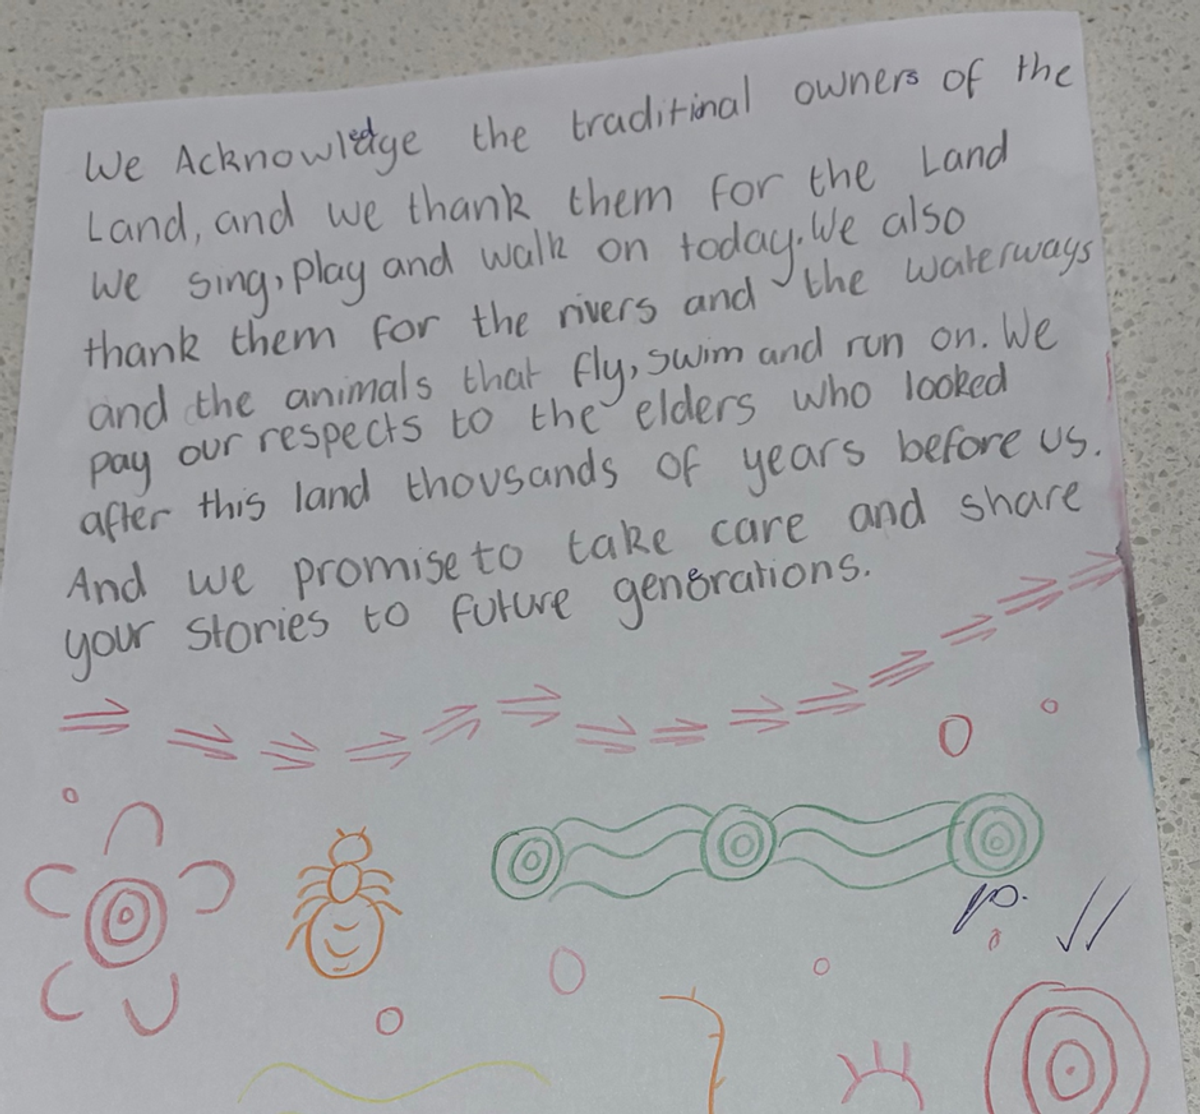 We Acknowledge the traditinal owners of the
Land, and we thank them for the Land
We sing, play and walk on today. We also
thank them for the rivers and the waterways
and the animals that fly, swim and run on. We
pay our respects to the elders who looked
after this land thousands of years before us.
And we promise to take care and share
your stories to future generations.